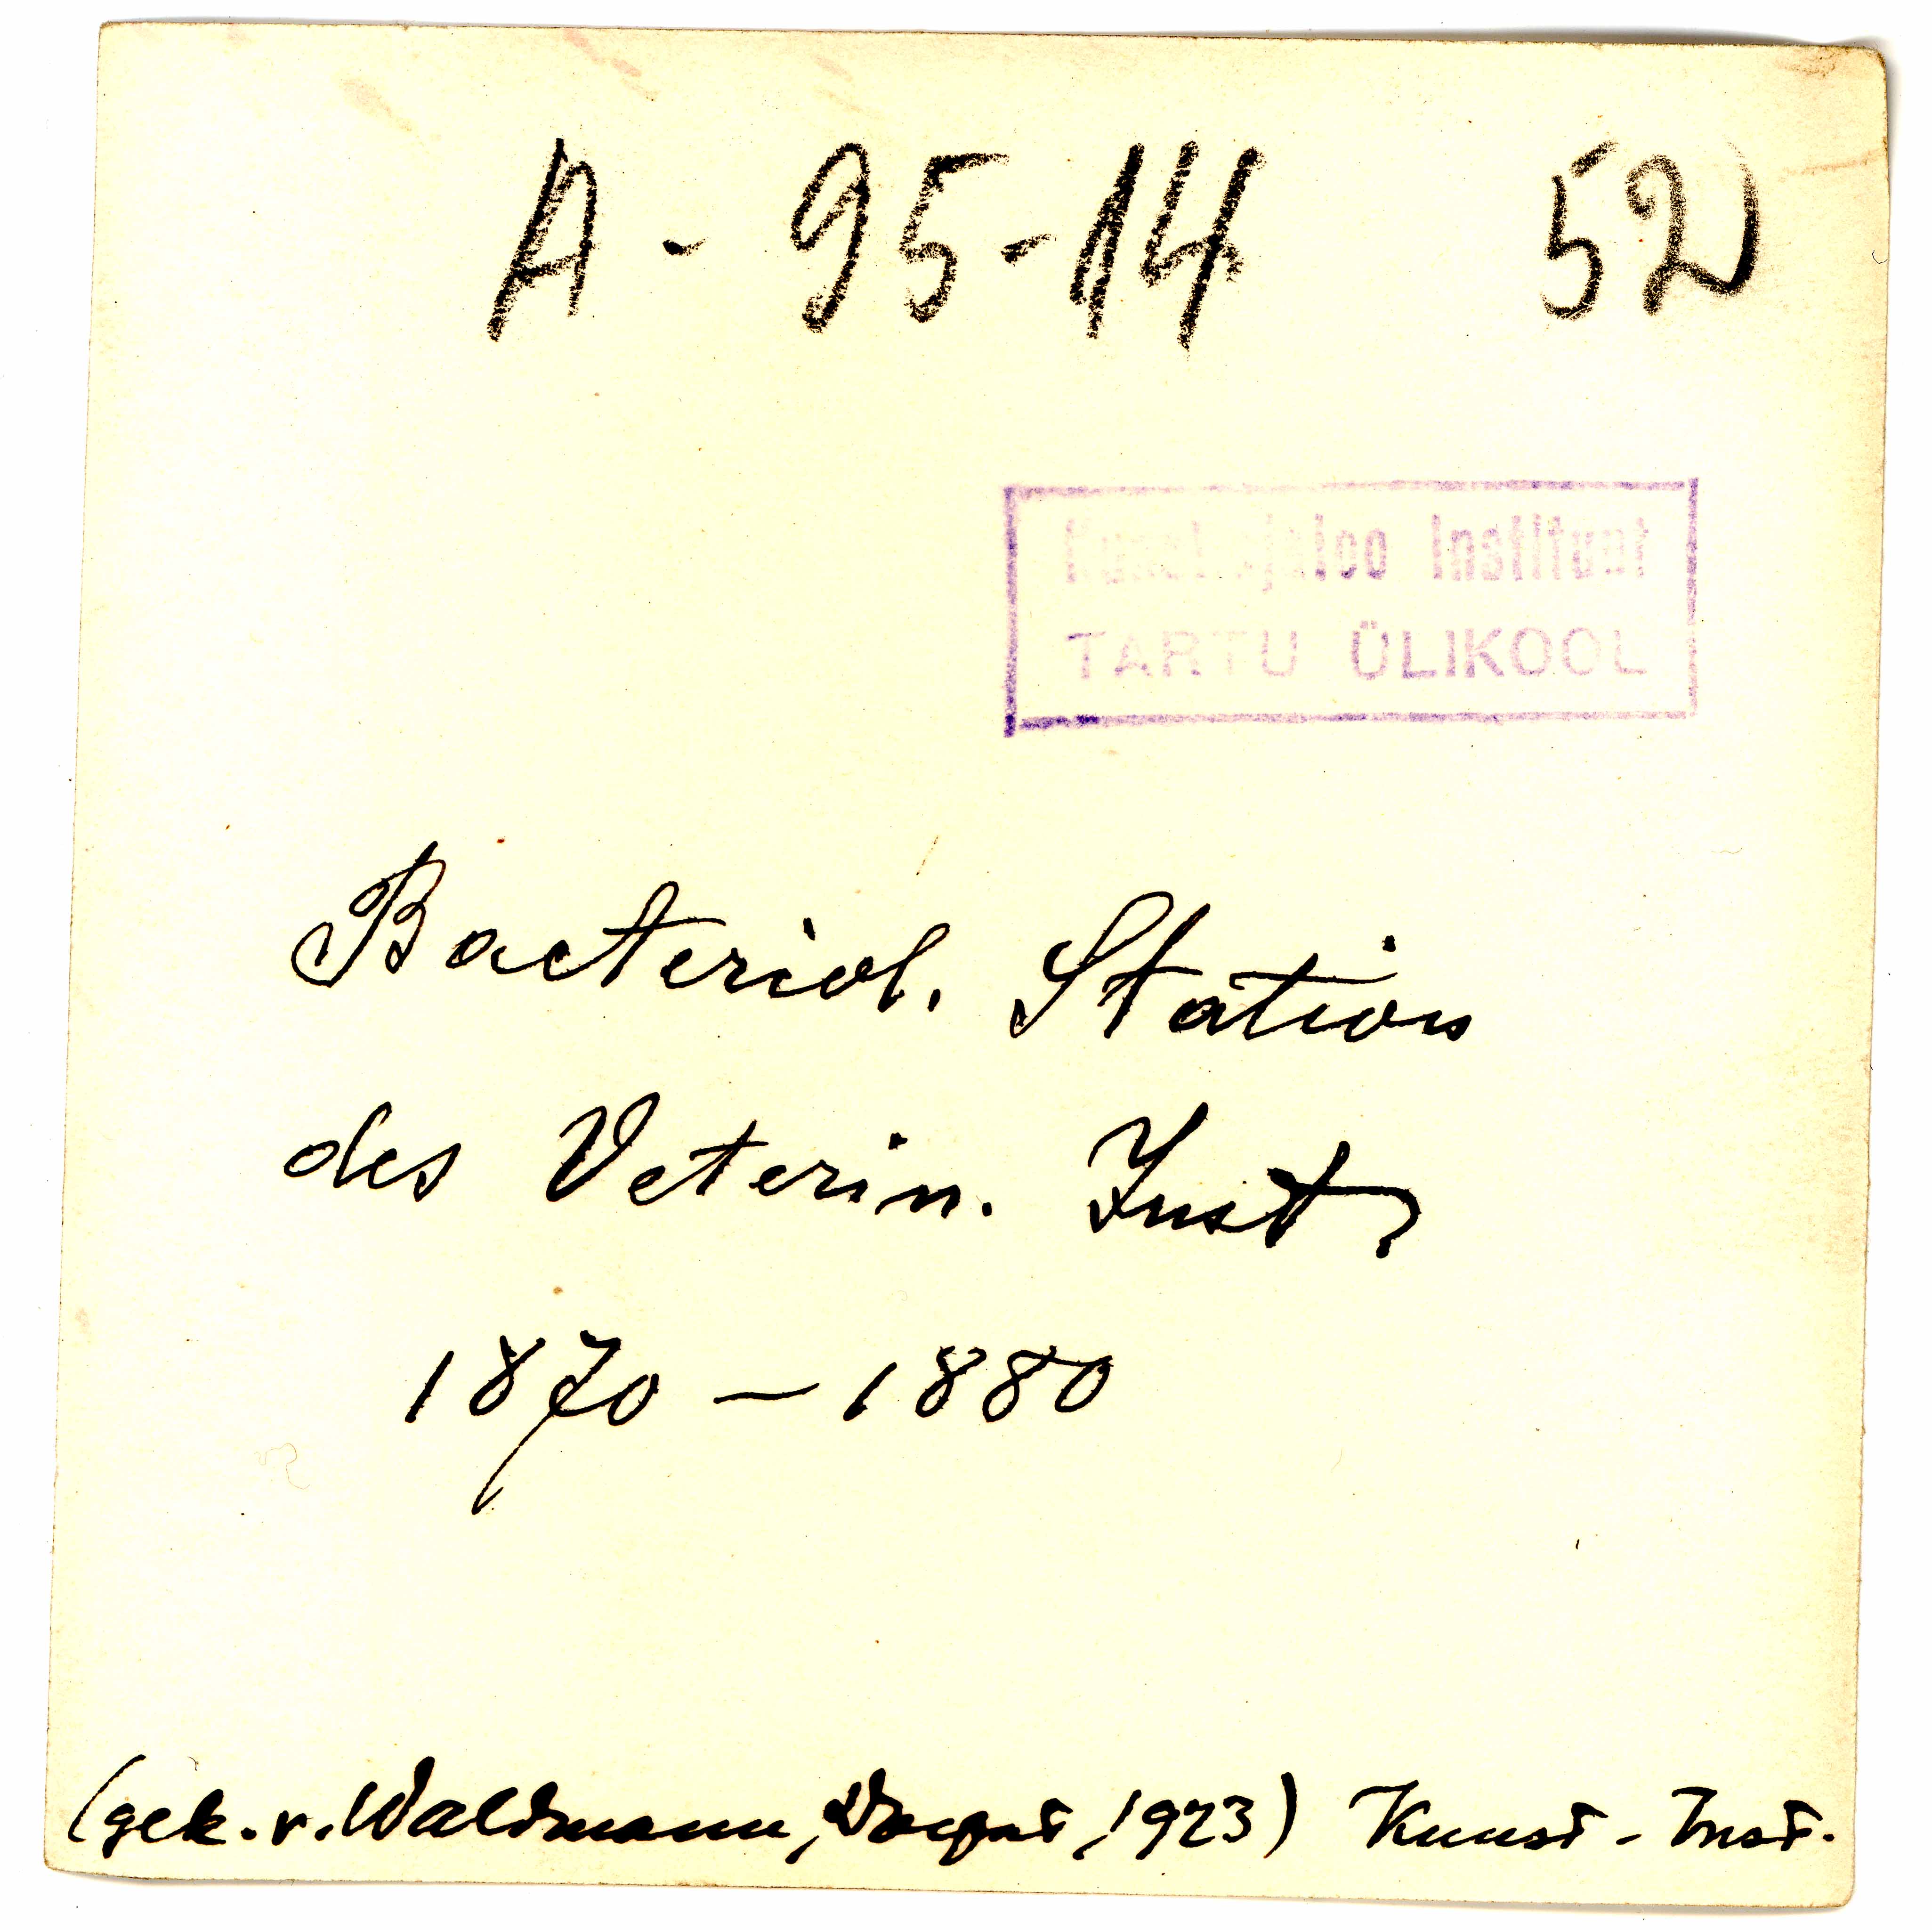 A - 95-14 52
Kunstiajaloo Instituut
TARTU ÜLIKOOL
Bacteriol. Station
des Veterin. Inst.
1870 — 1880
(gek. v. Waldmann, Dorpat, 1923) Kunst - Inst.